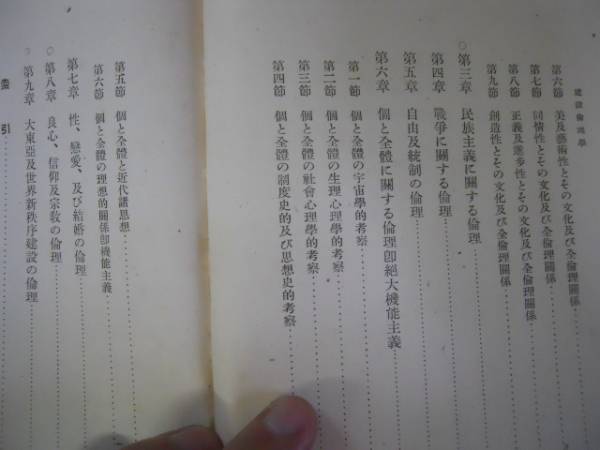 建設倫理學
第六節　美及藝術性とその文化及び全倫理關係
第七節　同情性とその文化及び全倫理關係
第八節　正義及進步性とその文化及び全倫理關係
第九節　創造性とその文化及び全倫理關係
○第三章　民族主義に關する倫理
第四章　戰爭に關する倫理
第五章　自由及統制の倫理
第六章　個と全體に關する倫理卽絕大機能主義
第一節　個と全體の宇宙學的考察
第二節　個と全體の生理心理學的考察
第三節　個と全體の社會心理學的考察
第四節　個と全體の制度史的及び思想史的考察
第五節　個と全體と近代諸思想
第六節　個と全體の理想的關係卽機能主義
第七章　性、戀愛、及び結婚の倫理
○第八章　良心、信仰及宗敎の倫理
○第九章　大東亞及世界新秩序建設の倫理
索引